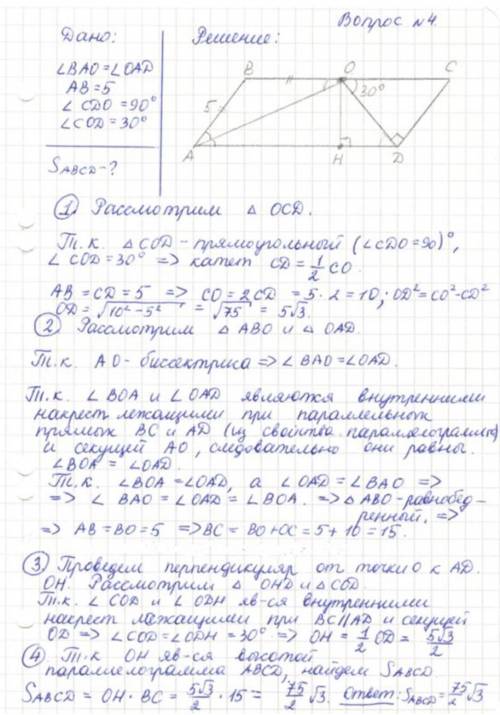 Вопрос №4.
Дано:
Решение:
∠BAO=∠OAD
AB=5
∠CDO=90°
∠COD=30°
S_ABCD-?
B
O
C
30°
5
A
H
D
① Рассмотрим △ OCD.
Т.к. △COD-прямоугольный (∠CDO=90)°,
∠COD=30° => катет CD=1/2 CO.
AB=CD=5 => CO=2CD =5·2=10; OD²=CO²-CD²
OD=√(10²-5²) =√75 =5√3.
② Рассмотрим △ ABO и △ OAD.
Т.к. AO-биссектриса => ∠BAO=∠OAD.
Т.к. ∠BOA и ∠OAD являются внутренними
накрест лежащими при параллельных
прямых BC и AD (из свойства параллелограмма)
и секущей AO, следовательно они равны.
∠BOA = ∠OAD.
Т.к. ∠BOA =∠OAD, а ∠OAD=∠BAO =>
=> ∠BAO=∠OAD=∠BOA. => △ABO-равнобед-
ренный. =>
=> AB=BO=5 =>BC=BO+OC=5+10=15.
③ Проведем перпендикуляр от точки O к AD.
OH. Рассмотрим △ OHD и △COD.
Т.к. ∠COD и ∠ODH яв-ся внутренними
накрест лежащими при BC||AD и секущей
OD => ∠COD=∠ODH=30° => OH=1/2 OD= 5√3/2
④ Т.к OH яв-ся высотой
параллелограмма ABCD, найдем S_ABCD
S_ABCD = OH·BC= 5√3/2 ·15= 75/2 √3. Ответ: S_ABCD=75/2 √3